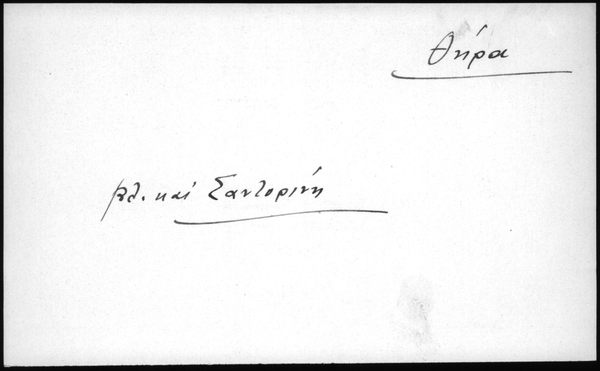 Θήρα
βλ. καί Σαντορίνη